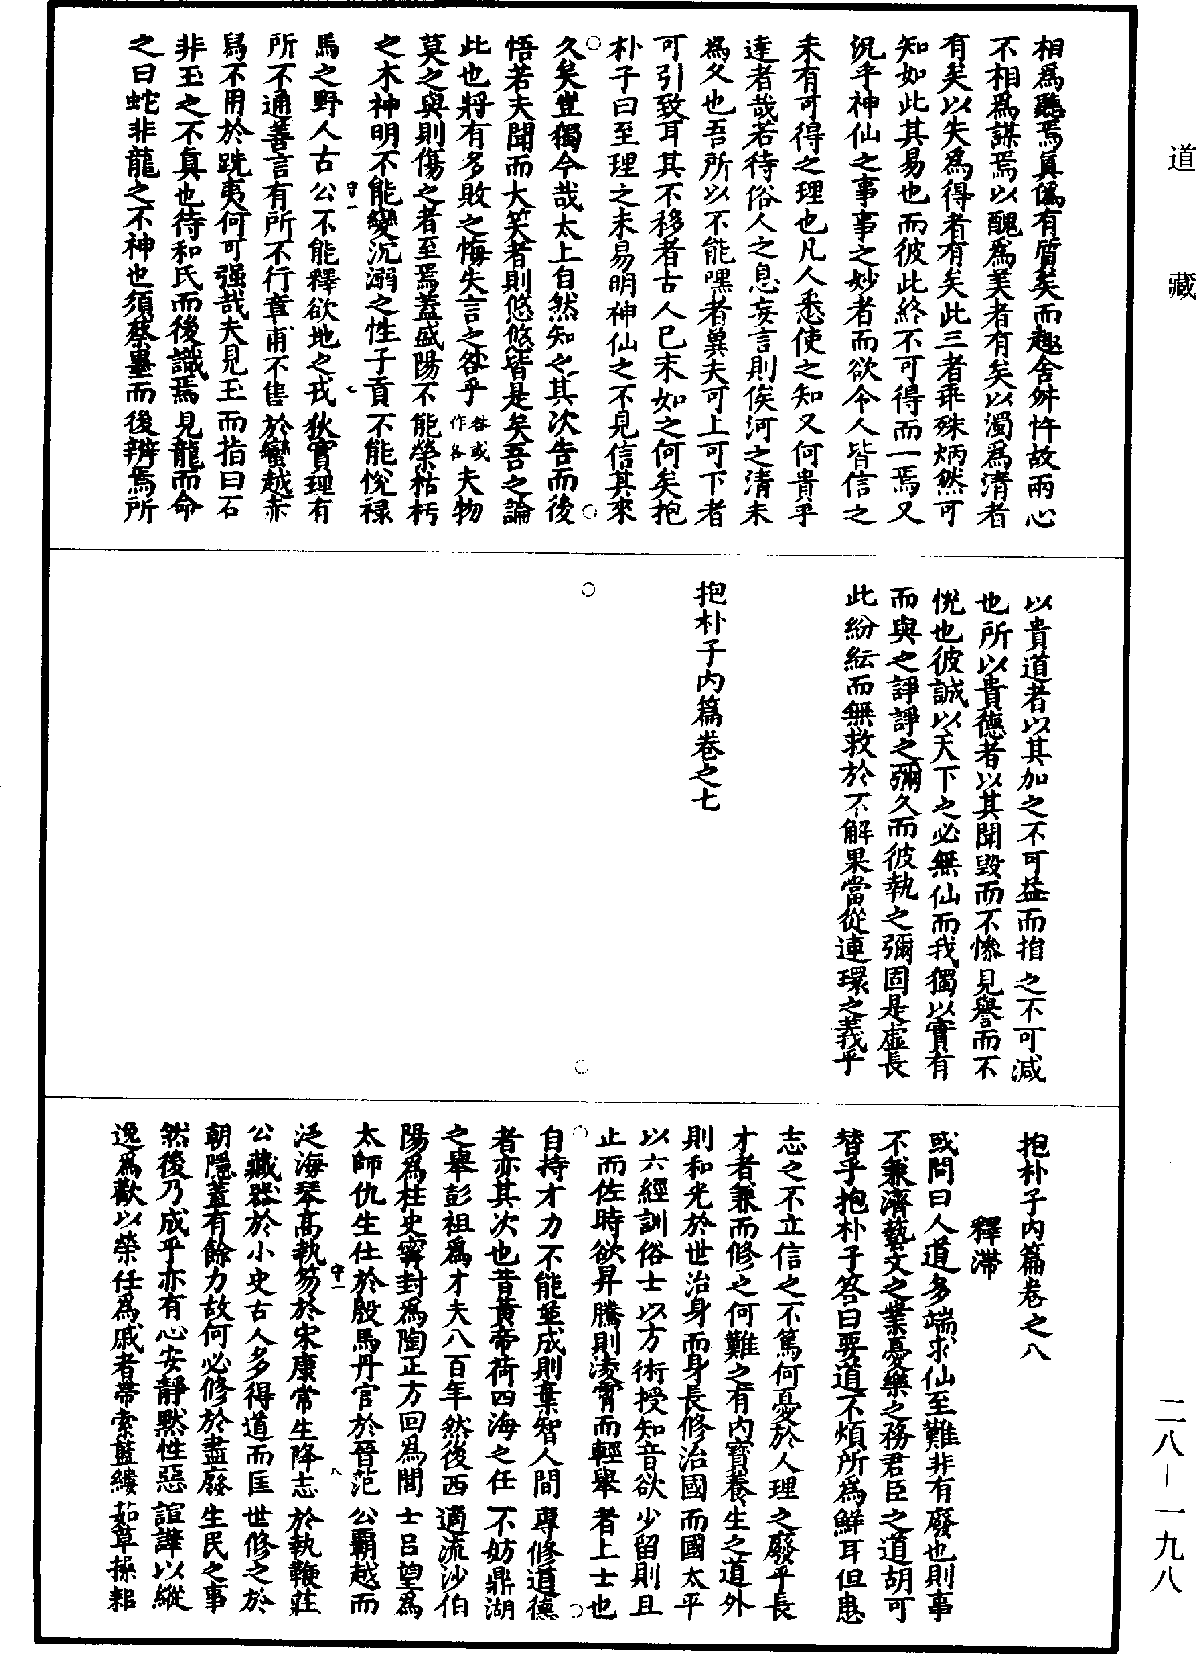 道藏
相為聽焉真偽有質矣而趣舍舛忤故兩心
不相為謀焉以醜為美者有矣以濁為清者
有矣以失為得者有矣此三者乖殊炳然可
知如此其易也而彼此終不可得而一焉又
況乎神仙之事事之妙者而欲令人皆信之
未有可得之理也凡人悉使之知又何貴乎
達者哉若待俗人之息妄言則俟河之清未
為久也吾所以不能嘿者冀夫可上可下者
可引致耳其不移者古人已末如之何矣抱
朴子曰至理之未易明神仙之不見信其來
久矣豈獨今哉太上自然知之其次告而後
悟若夫聞而大笑者則悠悠皆是矣吾之論
此也將有多敗之悔失言之咎乎咎或作各夫物
莫之與則傷之者至焉蓋盛陽不能榮枯朽
之木神明不能變沉溺之性子貢不能悅祿
馬之野人古公不能釋欲地之戎狄實理有
所不通善言有所不行章甫不售於蠻越赤
舄不用於跣夷何可强哉夫見玉而指曰石
非玉之不真也待和氏而後識焉見龍而命
之曰蛇非龍之不神也須蔡墨而後辨焉所
以貴道者以其加之不可益而損之不可減
也所以貴德者以其聞毀而不慘見譽而不
悅也彼誠以天下之必無仙而我獨以實有
而與之諍諍之彌久而彼執之彌固是虛長
此紛紜而無救於不解果當從連環之義乎
抱朴子內篇卷之七
抱朴子內篇卷之八
釋滯
或問曰人道多端求仙至難非有廢也則事
不兼濟藝文之業憂樂之務君臣之道胡可
替乎抱朴子答曰要道不煩所為鮮耳但患
志之不立信之不篤何憂於人理之廢乎長
才者兼而修之何難之有內寶養生之道外
則和光於世治身而身長修治國而國太平
以六經訓俗士以方術授知音欲少留則且
止而佐時欲昇騰則凌霄而輕舉者上士也
自持才力不能並成則棄智人間專修道德
者亦其次也昔黃帝荷四海之任不妨鼎湖
之舉彭祖為才夫八百年然後西適流沙伯
陽為柱史甯封為陶正方回為閭士呂望為
太師仇生仕於殷馬丹官於晉范公霸越而
泛海琴高執笏於宋康常生降志於執鞭莊
公藏器於小史古人多得道而匡世修之於
朝隱蓋有餘力故何必修於盡廢生民之事
然後乃成乎亦有心安靜默性惡諠譁以縱
逸為歡以榮任為戚者帶索藍縷茹草操耜
二八-一九八